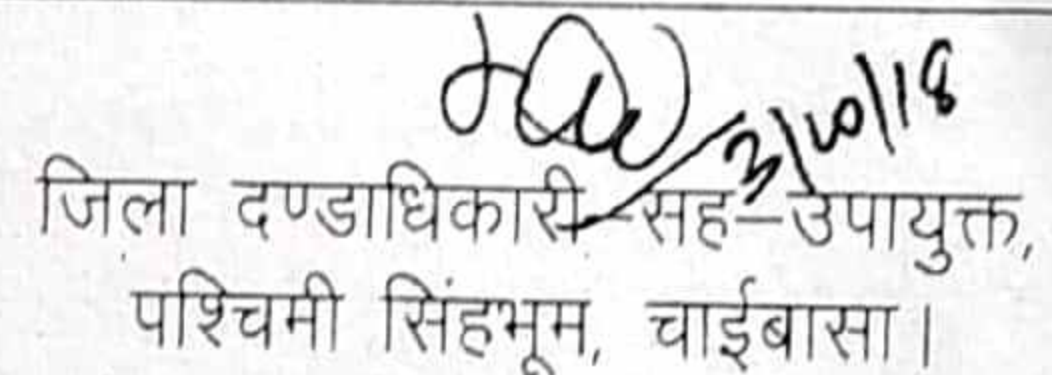 3/10/18
जिला दण्डाधिकारी-सह-उपायुक्त,
पश्चिमी सिंहभूम, चाईबासा।